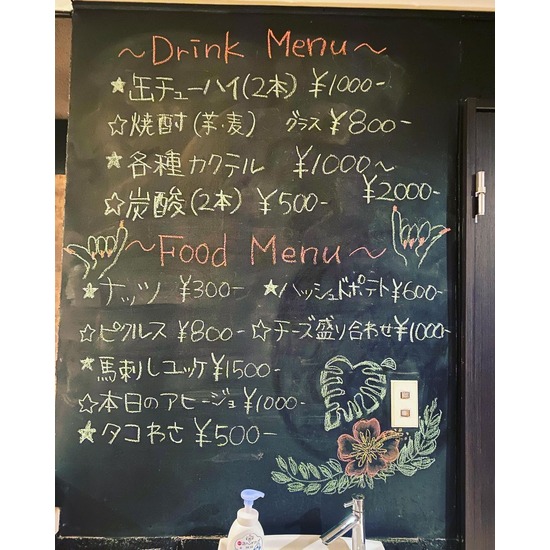 ～Drink Menu～
★缶チューハイ(2本) ¥1000-
☆焼酎(芋・麦) グラス ¥800-
★各種カクテル ¥1000～
¥2000-
☆炭酸(2本) ¥500-
～Food Menu～
★ナッツ ¥300- ★ハッシュドポテト¥600-
☆ピクルス ¥800- ☆チーズ盛り合わせ¥1000-
★馬刺しユッケ¥1500-
☆本日のアヒージョ¥1000-
★タコわさ ¥500-